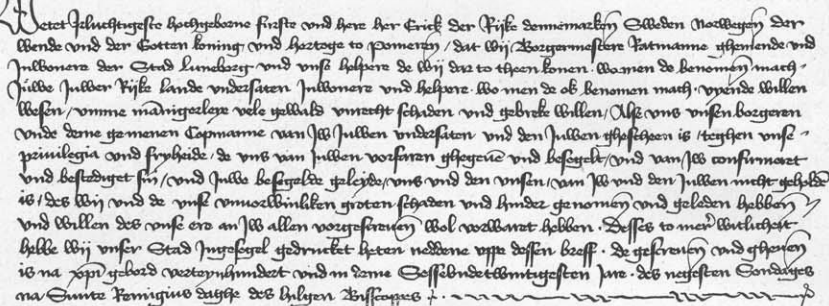 Wetet Irluchtigeste hochgeborne furste vnd here her Erick der Rijke dennemarken Sweden Norwegen der
Wende vnd der Gotten koning vnd hertoge to pomeren / dat wij Borgermestere Ratmanne ghemende vnd
Inwonere der Stad Luneborg vnd vnse helpere de wij dar to theen konen . wo men de benomen mach .
Juwe Juwer Rijke lande vndersaten Inwonere vnd helpere . wo men de ok benomen mach . vyende willen
wesen / vmme mannigerleye vele gewald vnrecht schaden vnd gebreke willen / Alse vns vnsen borgeren
vnde deme gemenen Copmanne van Jw Juwen vndersaten vnd den Juwen ghescheen is / teghen vnse
priuilegia vnd fryheide / de vns van Juwen vorfaren ghegeuen vnd besegelt / vnd van Jw confirmeret
vnd bestediget sin / vnd Juwe besegelde geleyde / vns vnd den vnsen / van Jw vnd den Juwen nicht geholden
is / des wij vnd de vnse vnvorwinliken groten schaden vnd hinder genomen vnd geleden hebben /
vnd willen des vnse ere an Jw allen vorgescreuen wol vorwaret hebben . Desses to mer witlicheit
hebbe wij vnser Stad Ingesegel gedrucket heten neddene vppe dessen breff . de gescreuen vnd gheuen
is na xpi gebord verteynhundert vnd in deme Sessevndetwintigesten Jare . des negesten Sondages
na Sunte Remigius daghe des hilgen Bisscoppes